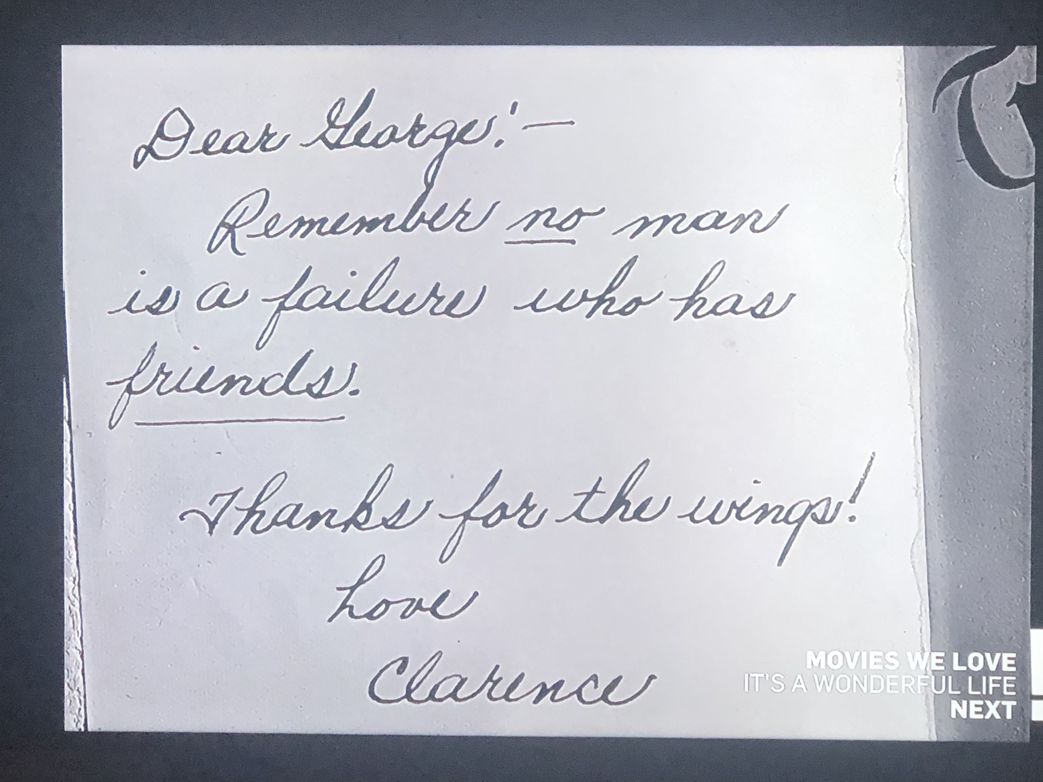 Dear George:—
Remember no man
is a failure who has
friends.
Thanks for the wings!
Love
Clarence
MOVIES WE LOVE
IT'S A WONDERFUL LIFE
NEXT